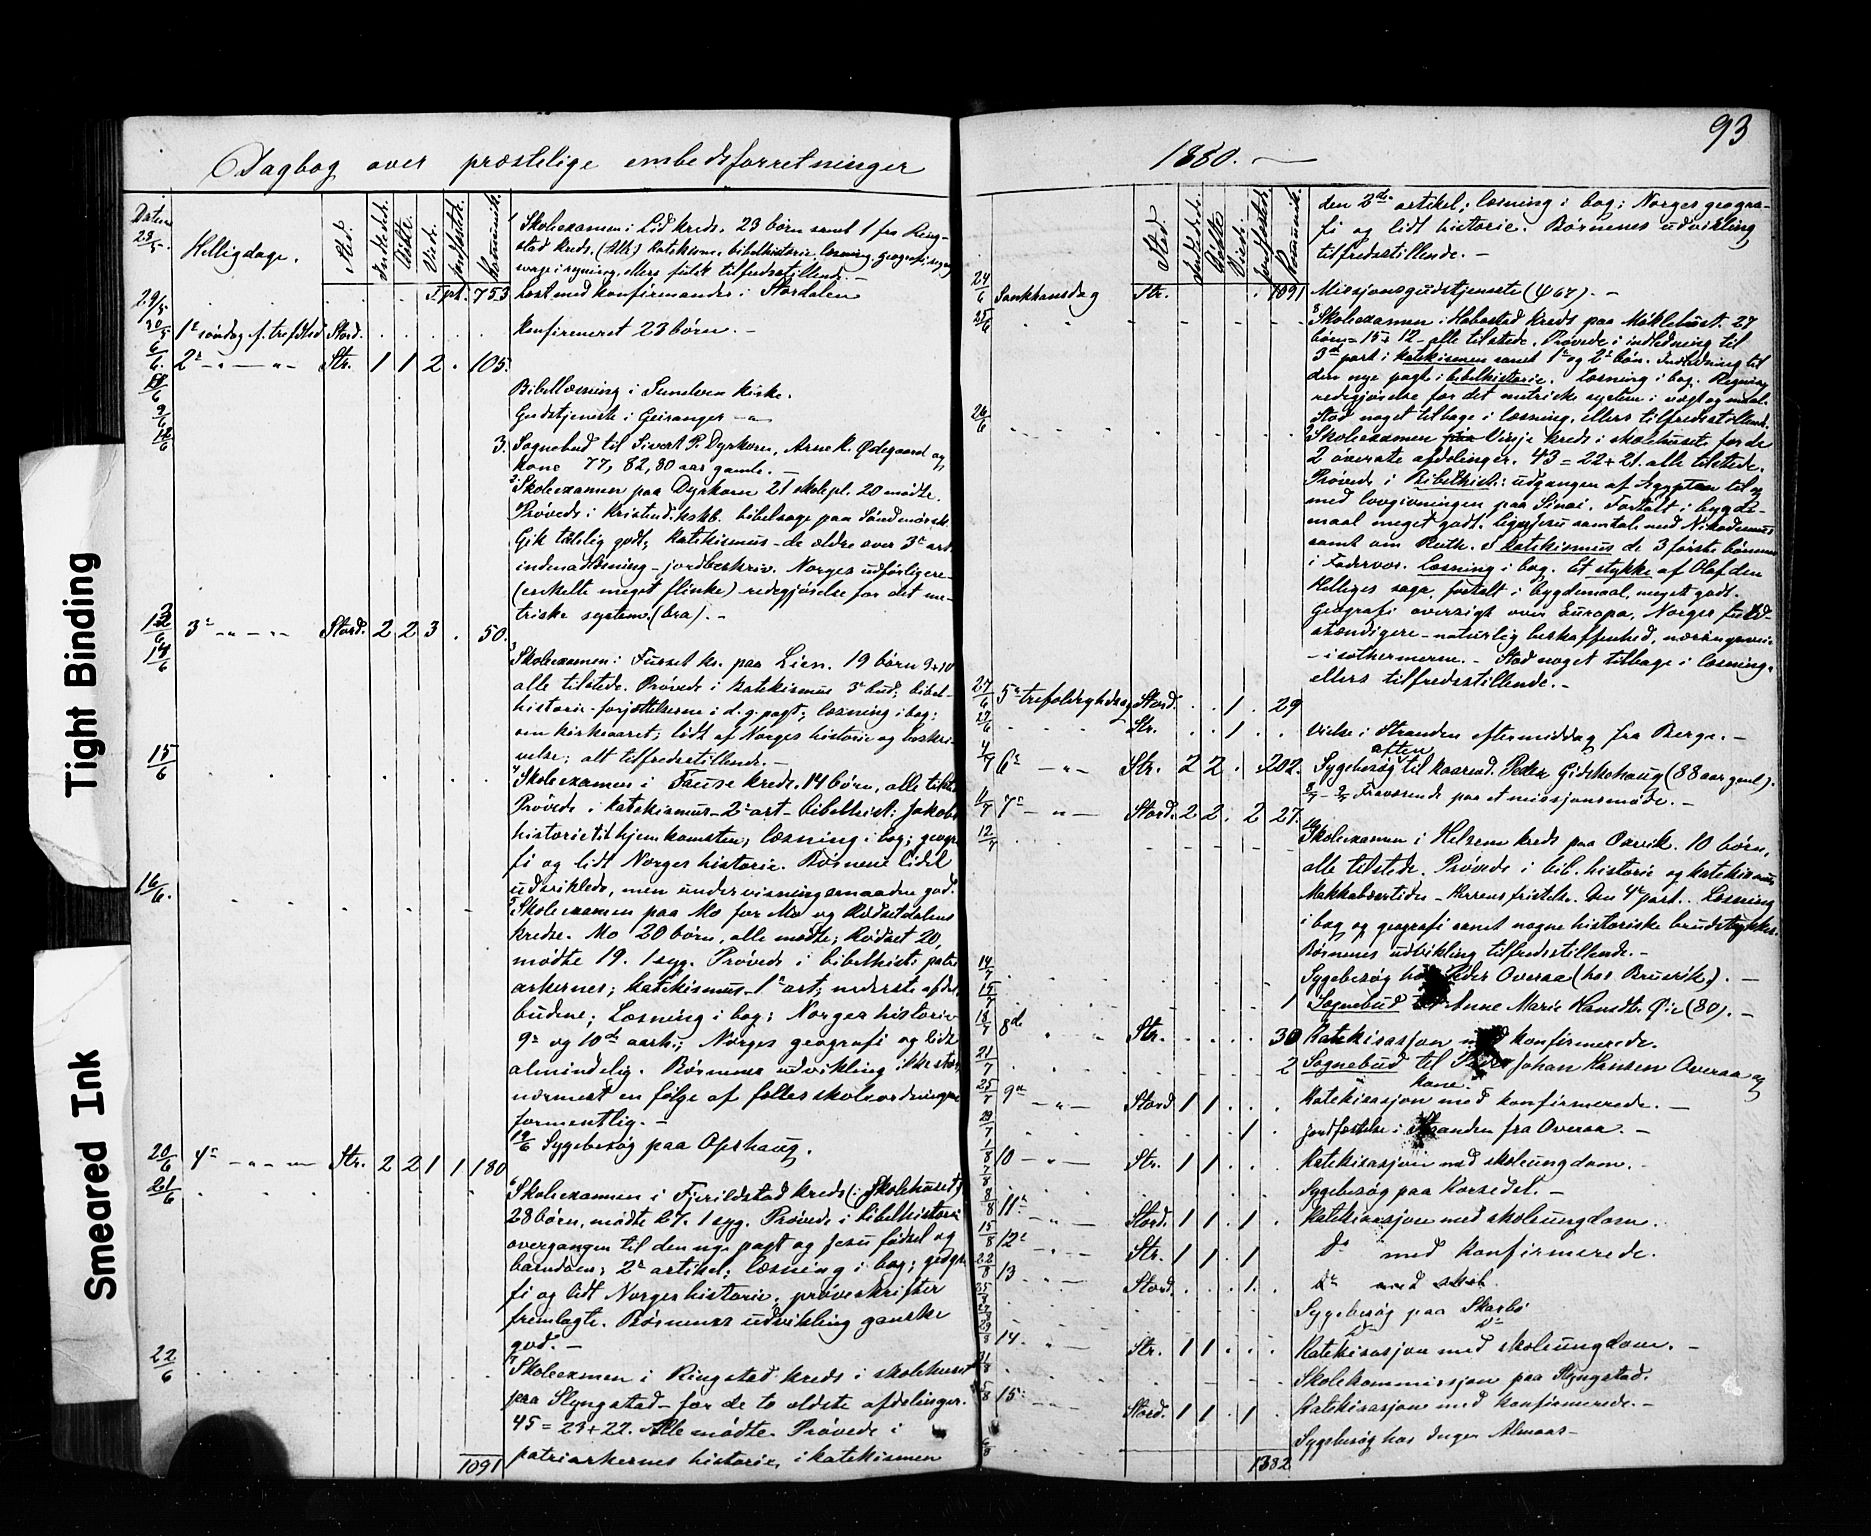 93
Dagbog over præstelige embedsforretninger
1880. —
Datum
Helligdage.
Sted.
Daabsb.
Viede.
Jordfæstede.
Kommunik.
28/5
1 Skoleexamen i Lid kreds. 23 börn samt 1 fra Ring-
stad kreds. (Alb.) Katekisme, bibelhistorie, læsning, geografi, sang
svage i regning, ellers fuldt tilfredsstillende. —
29/5 Fprt. 753 læst med konfirmander i Stordalen
30/5 1ste söndag f. trefoldhed Stord. Konfirmeret 23 börn. —
6/6 2n — " — " — Str. 1 1 2 . 105.
Bibellæsning i Sunelven kirke.
9/6 Gudstjeneste i Geiranger — "
12/6 3. Sognebud til Sivert P. Dyrkorn, Arne K. Ødegaard og
kone 77, 82, 80 aar gamle. —
2 Skoleexamen paa Dyrkorn 21 skolepl. 20 mödte.
Prövede i Kristend. kskb. bibelsage paa Söndmörsk
Gik tålelig godt; katekismus — de ældre over 3die art.
indenadlæsning — jordbeskriv. Norges udförligere —
(enkelte meget flinke) — redegjörelse for det me-
triske system. (bra). —
13/6 3n — " — " — Stord. 2 2 3 . 50.
14/6
3 Skoleexamen i Fusset kr. paa Lien. 19 börn 9+10
alle tilstede. Prövede i katekismus 3die bud, bibel-
historie — forjættelserne i d. g. pagt; læsning i bog;
om kirkeaaret; lidt af Norges historie og beskri-
velse; alt tilfredsstillende. —
15/6
4 Skoleexamen i Fause kreds. 14 börn, alle tilst.
Prövede i katekismus — 2n art — bibelhist: Jakobs
historie til hjemkomsten; læsning i bog; geogra-
fi og lidt Norges historie. Börnene lidet
udviklede, men undervisningsmaaden god.
16/6.
5 Skoleexamen paa Mo for Mo og Rödsetdalens
kredse. Mo 20 börn, alle mödte; Rödset 20,
mödte 19. 1 syg. Prövede i bibelhist: patri-
arkernes; katekismus — 1ste art; nederste afdel.
budene; Læsning i bog; Norges historie
9n og 10de aarh.; Norges geografi og lidt
almindelig. Börnenes udvikling ikke stor,
nærmest en fölge af fællesskoleordningen
formentlig. —
19/6 Sygebesög paa Opshaug.
20/6 4n — " — " — Str. 2 2 1 1 180
21/6
6 Skoleexamen i Fjerildstad kreds (i Skolehuset)
28 börn, mödte 27. 1 syg. Prövede i bibelhistorie
overgangen til den nye pagt og Jesu födsel og
barndom; 2n artikel; læsning i bog; geogra-
fi og lidt Norges historie, pröveskrifter
fremlagte. Börnenes udvikling ganske
god. —
22/6
7 Skoleexamen i Ringstad kreds i skolehuset
paa Slyngstad — for de to ældste afdelinger.
45 = 23+22. Alle mödte. Prövede i
patriarkernes historie, i katekismen
1091
den 2den artikel; læsning i bog; Norges geogra-
fi og lidt historie. Börnenes udvikling
tilfredsstillende. —
24/6 Sankthansdag Str. 1091 Missionsgudstjeneste (ψ 67). —
25/6
8 Skoleexamen i Habostad kreds paa Möklebust. 27
börn = 15+12 — alle tilstede. Prövede i indledning til
3die part i katekismen samt 1ste og 2den bön. Indledning til
den nye pagt i bibelhistorie. Læsning i bog. Regning
redegjörelse for det metriske system i vægt og maal.
Stod noget tilbage i læsning, ellers tilfredsstillend.
26/6
9 Skoleexamen Vinje kreds i skolehuset for de
2 överste afdelinger. 43 = 22+21. alle tilstede.
Prövede i Bibelhist: udgangen af Ægypten til og
med lovgivningen paa Sinai. Fortalt i bygde-
maal meget godt, ligesaa samtal. med Nikodemus
samt om Ruth. I katekismus de 3 förste bönner
i Fadervor. Læsning i bog. Et stykke af Olaf den
Helliges saga, fortalt i bygdemaal, meget godt.
Geografi oversigt over Europa, Norges fuld-
stændigere — naturlig beskaffenhed, næringsveie
— isothermerne. — Stod noget tilbage i læsning,
ellers tilfredsstillende. —
27/6 5n trefoldighedsdag Stord. . . 1 . 29
27/6 Str. . . 1 . . Vielse i Stranden eftermiddag fra Berge. —
4/7 6n — " — Str. 2 2 . . 202. Sygebesög aften til kaarmd. Peder Gidskehaug (88 aar gaml).
8/7 — 9/7 Fraværende paa et missjonsmöde. —
11/7 7n — " — Stord. 2 2 . 2 27.
12/7
10 Skoleexamen i Helsem kreds paa Overvik. 10 börn,
alle tilstede. Prövede i bib. historie og katekismus
Makkabæertiden — Herrens fristelse. Den 4de part. Læsning
i bog og geografi samt nogne historiske brudstykker.
Börnenes udvikling tilfredsstillende. —
14/7 Sygebesög hos Peder Overaa (hos Bruvik). —
15/7 1 Sognebud Anne Marie Ramdts Öie (80). —
18/7 8d " " Str. . . . . 30 Katekisasjon med konfirmerede.
21/7 2 Sognebud til Johan Hansen Overaa og
kone.
25/7 9n — " — Stord 1 1 . . . Katekisasjon med konfirmerede. —
29/7 1 . Jordfæstelse i Stranden fra Overaa. —
1/8 10 — " — Str. 1 1 . . . Katekisasjon med skoleungdom. —
7/8 Sygebesög paa Korsedal. —
8/8 11n " — Stord. 1 1 . 1 . Katekisasjon med skoleungdom.
15/8 12n " — Str. 1 1 . 1 Do med konfirmerede.
22/8 13 " — Stord. . . . 1. . Do med skol.
25/8 Sygebesög paa Skarbö
27/8 Do Do
29/8 14. " — Str. 1 1 . . . Katekisasjon med skoleungdom. —
31/8 Skolekommissjon paa Slyngstad.
5/8 15. " — Stord. 1 1 . 1 . Katekisasjon med konfirmerede. —
6/8 Sygebesög hos Inger Almaas —
1382
Tight Binding
Smeared Ink